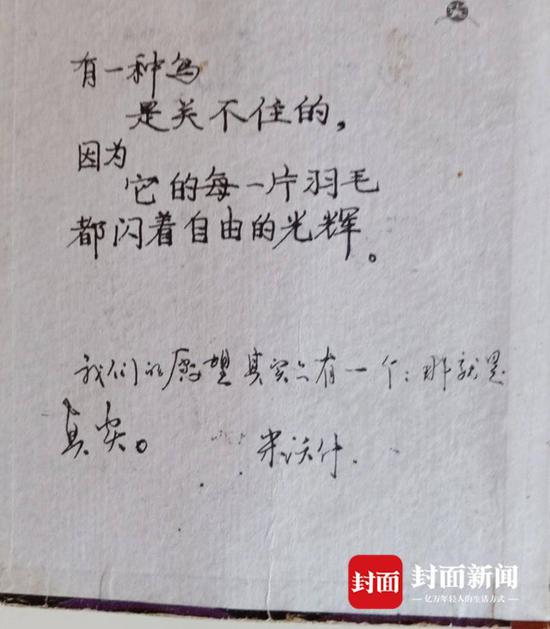 有一种鸟
是关不住的，
因为
它的每一片羽毛
都闪着自由的光辉。
我们的愿望其实只有一个：那就是
真实。
米沃什.
封面 封面新闻
亿万年轻人的生活方式